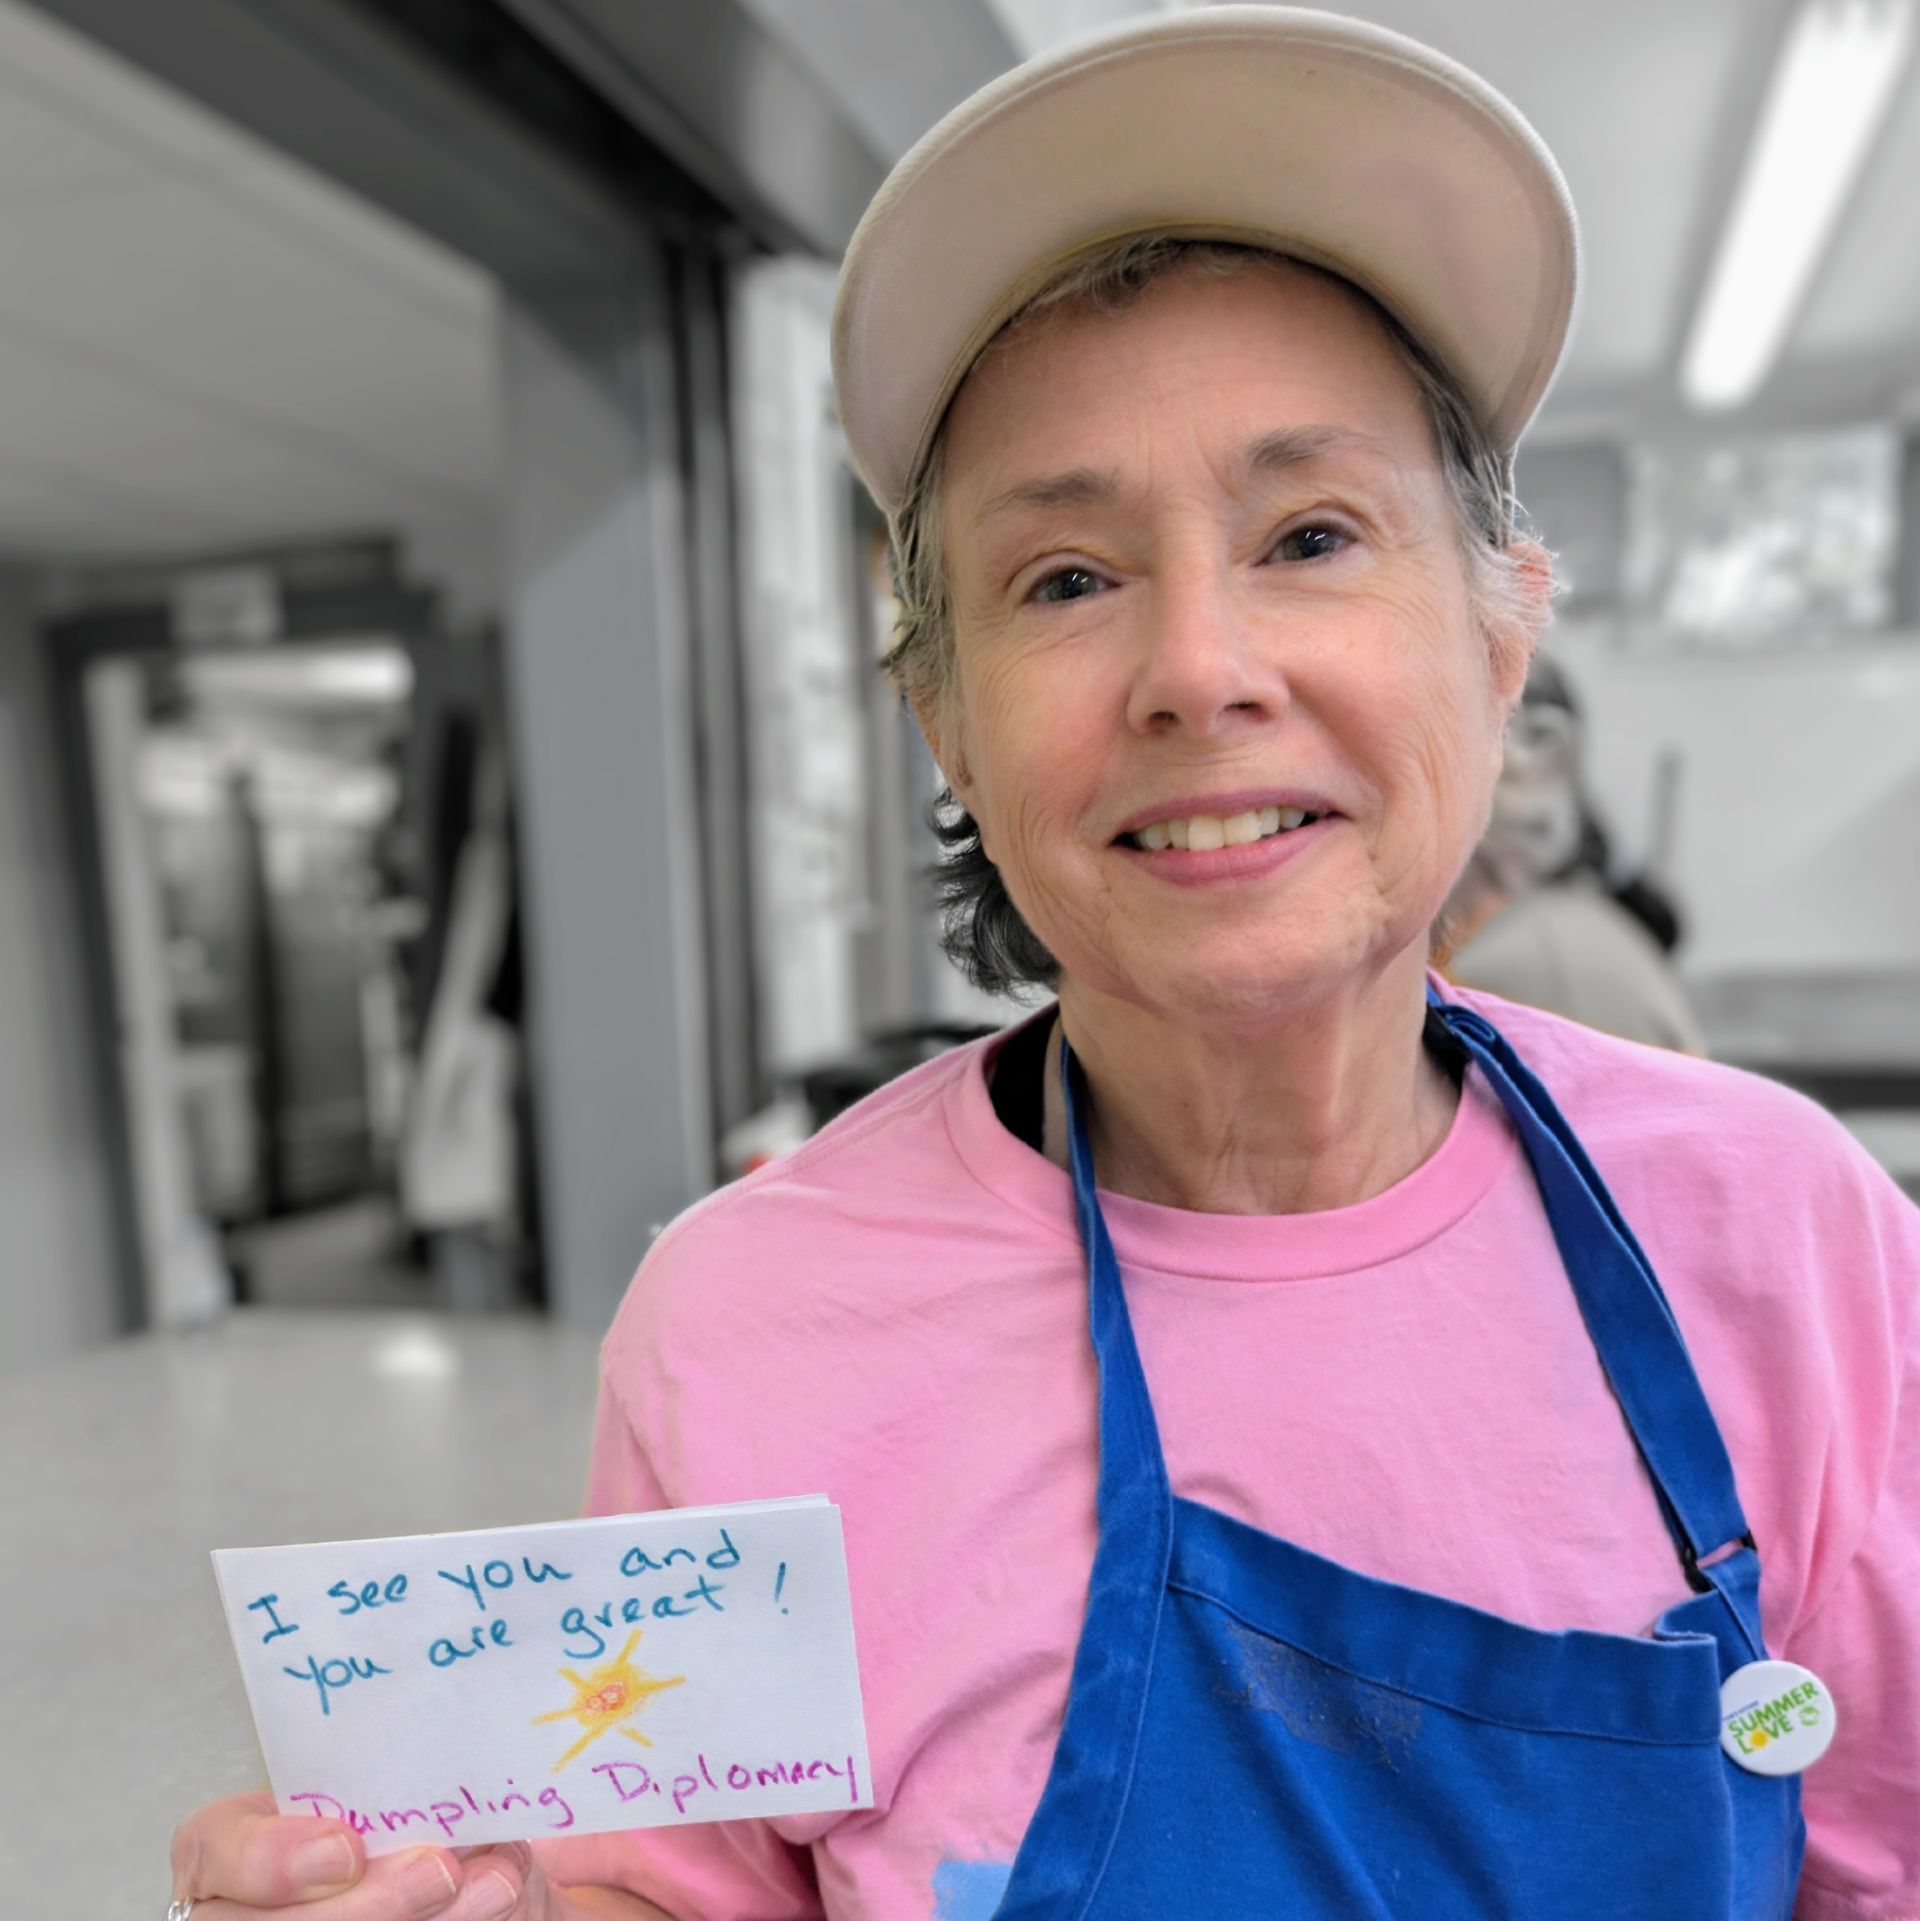 I see you and
you are great!
Dumpling Diplomacy
SUMMER
LOVE